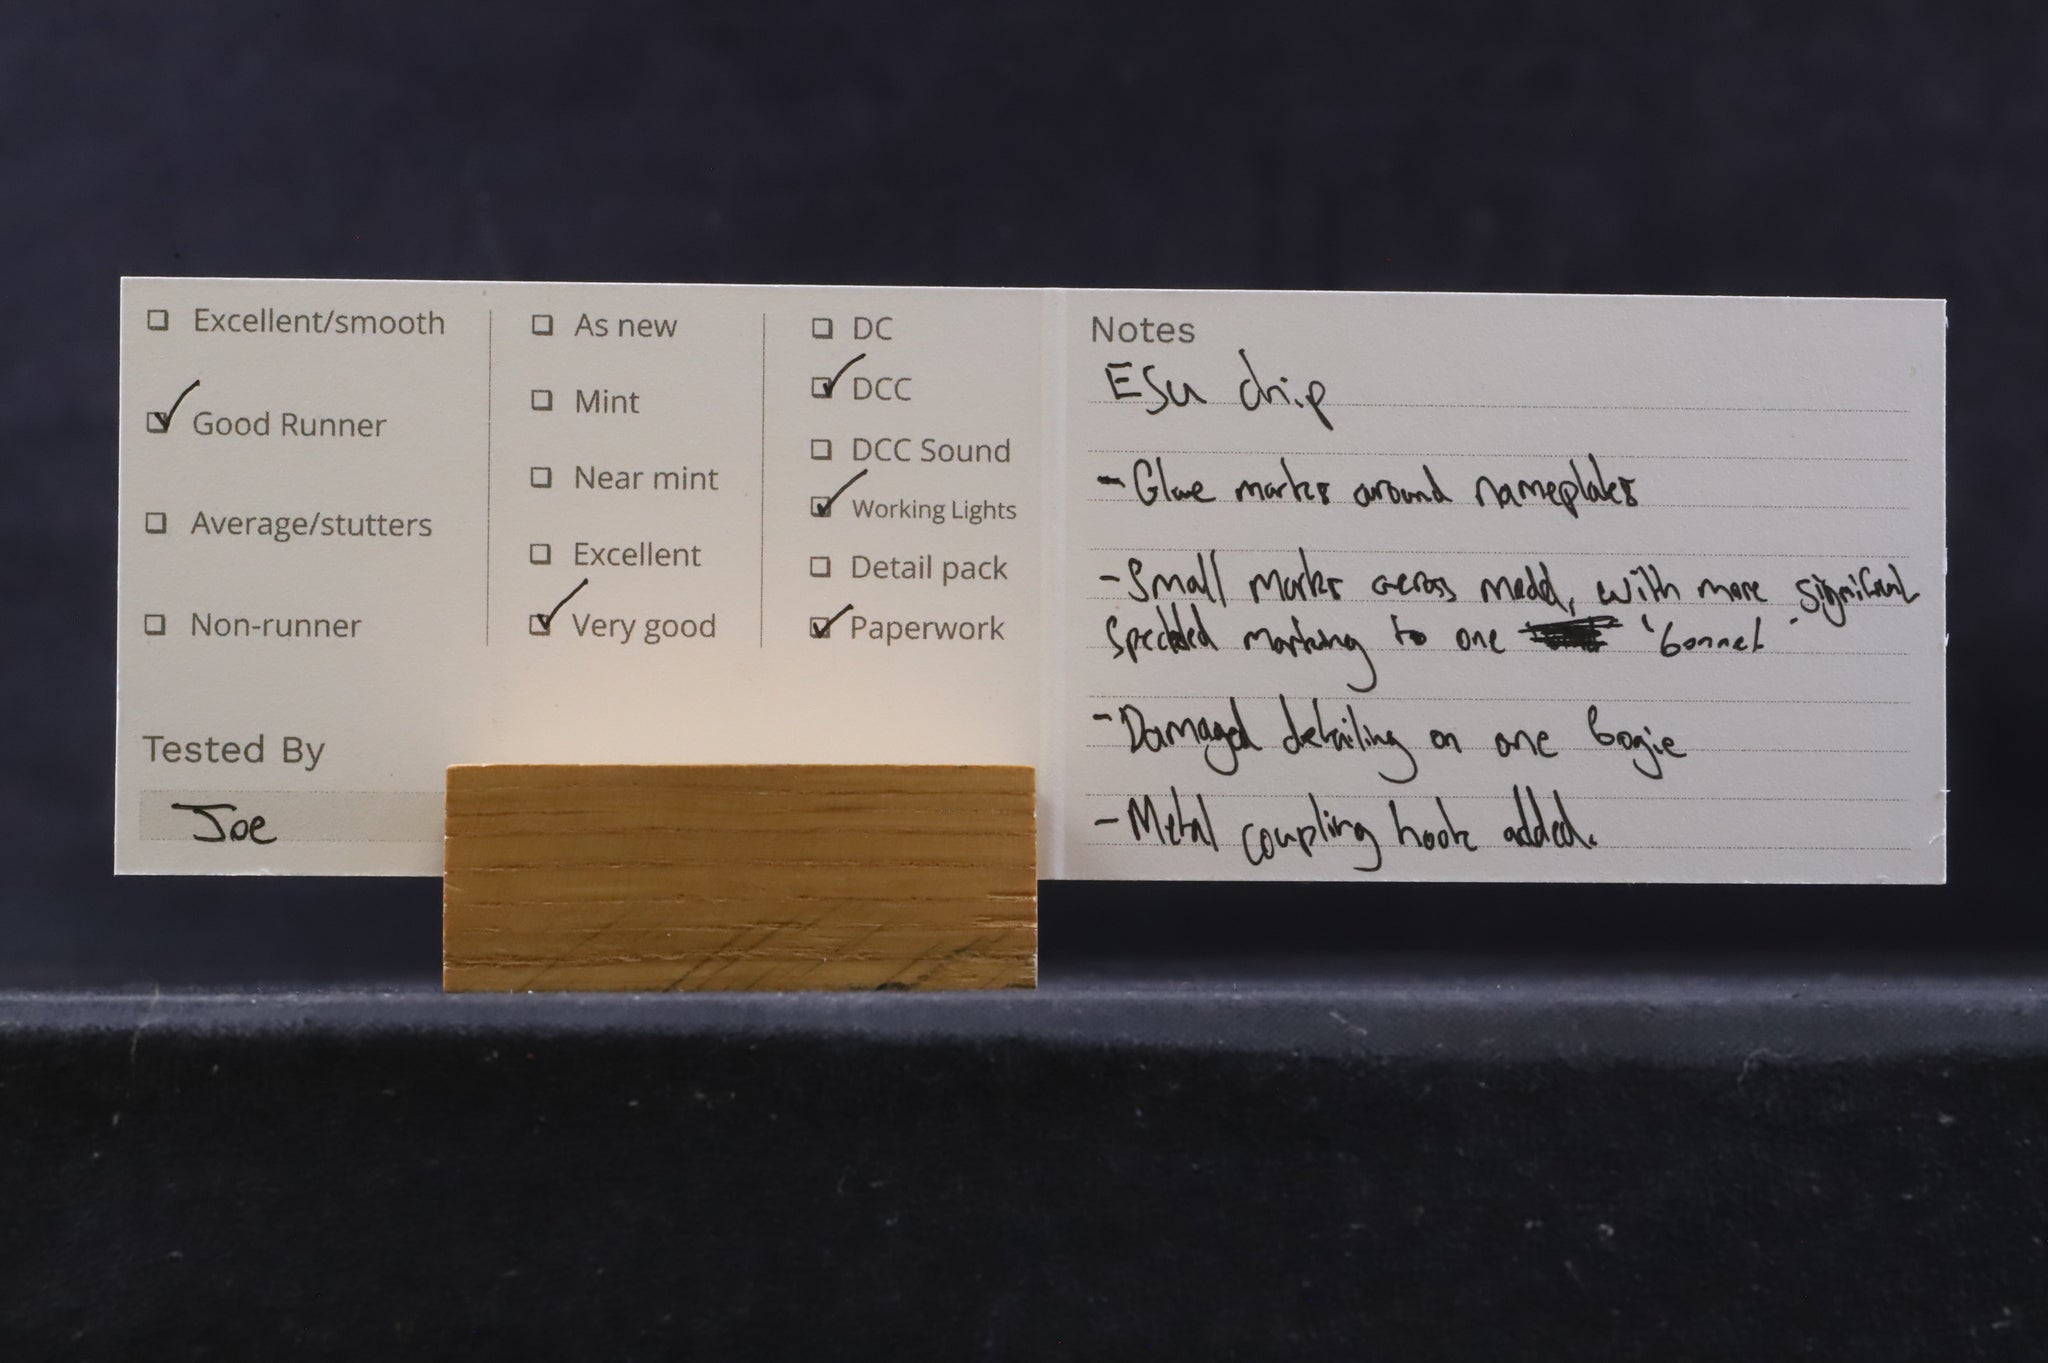 Excellent/smooth
Good Runner
Average/stutters
Non-runner
Tested By
Joe
As new
Mint
Near mint
Excellent
Very good
DC
DCC
DCC Sound
Working Lights
Detail pack
Paperwork
Notes
ESU chip
- Glue marks around nameplates
- Small marks across model, with more significant
speckled marking to one 'bonnet'
- Damaged detailing on one bogie
- Metal coupling hook added.